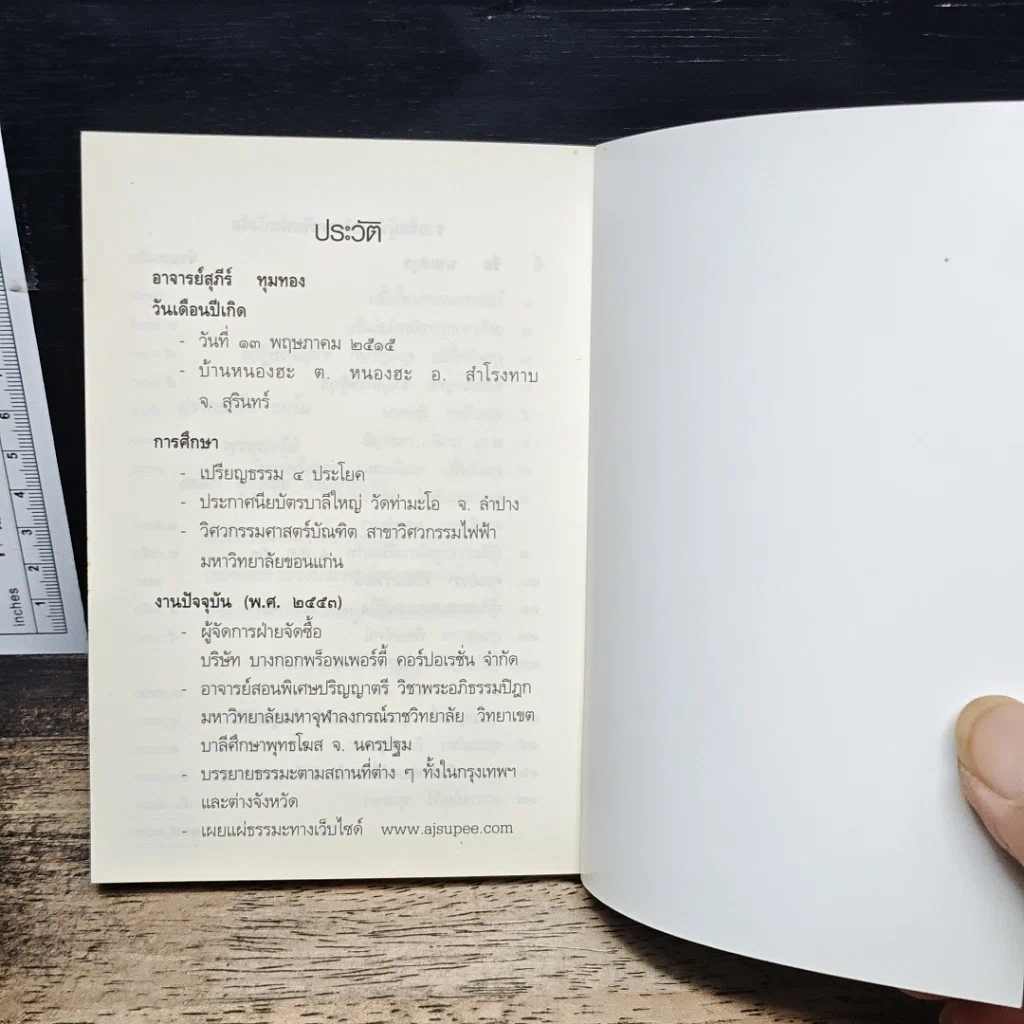 ประวัติ
อาจารย์สุภีร์ ทุมทอง
วันเดือนปีเกิด
- วันที่ ๑๓ พฤษภาคม ๒๕๑๕
- บ้านหนองฮะ ต. หนองฮะ อ. สำโรงทาบ
จ. สุรินทร์
การศึกษา
- เปรียญธรรม ๔ ประโยค
- ประกาศนียบัตรบาลีใหญ่ วัดท่ามะโอ จ. ลำปาง
- วิศวกรรมศาสตร์บัณฑิต สาขาวิศวกรรมไฟฟ้า
มหาวิทยาลัยขอนแก่น
งานปัจจุบัน (พ.ศ. ๒๕๕๓)
- ผู้จัดการฝ่ายจัดซื้อ
บริษัท บางกอกพร็อพเพอร์ตี้ คอร์ปอเรชั่น จำกัด
- อาจารย์สอนพิเศษปริญญาตรี วิชาพระอภิธรรมปิฎก
มหาวิทยาลัยมหาจุฬาลงกรณ์ราชวิทยาลัย วิทยาเขต
บาลีศึกษาพุทธโฆส จ. นครปฐม
- บรรยายธรรมะตามสถานที่ต่าง ๆ ทั้งในกรุงเทพฯ
และต่างจังหวัด
- เผยแผ่ธรรมะทางเว็บไซด์ www.ajsupee.com
inches
1
2
3
4
5
6